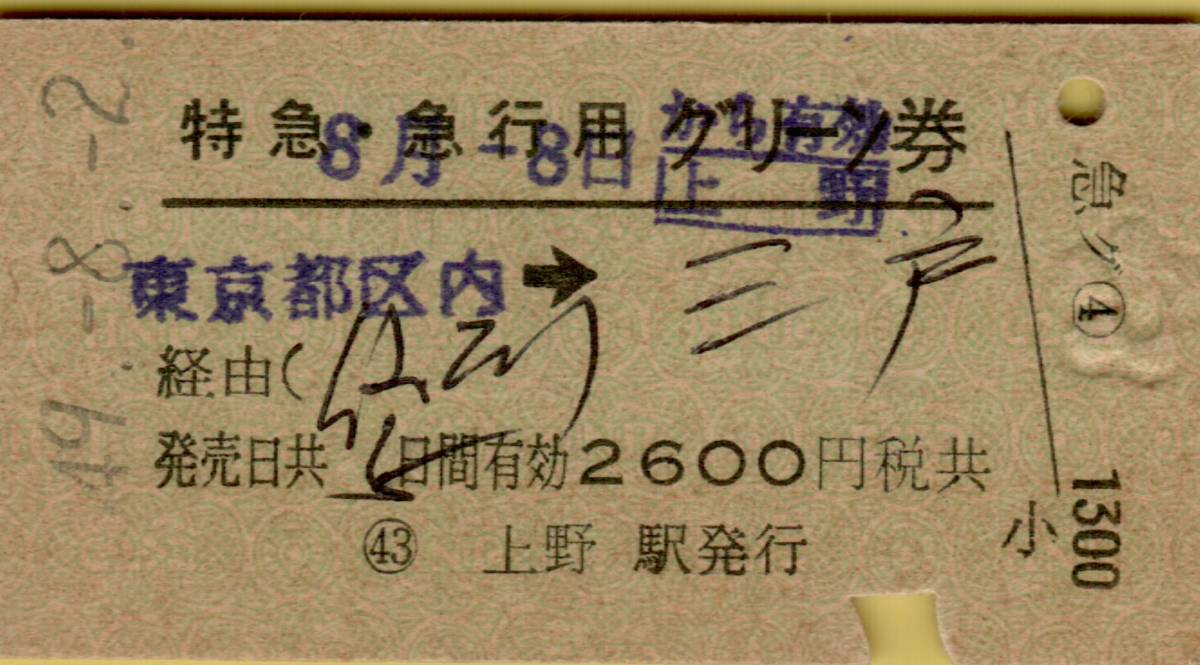 特急・急行用グリーン券
8月-8日から有効
上野
東京都区内➡三戸
経由(
発売日共2日間有効2600円税共
㊸ 上野 駅発行
49.-8.-2.
急グ④
小
1300